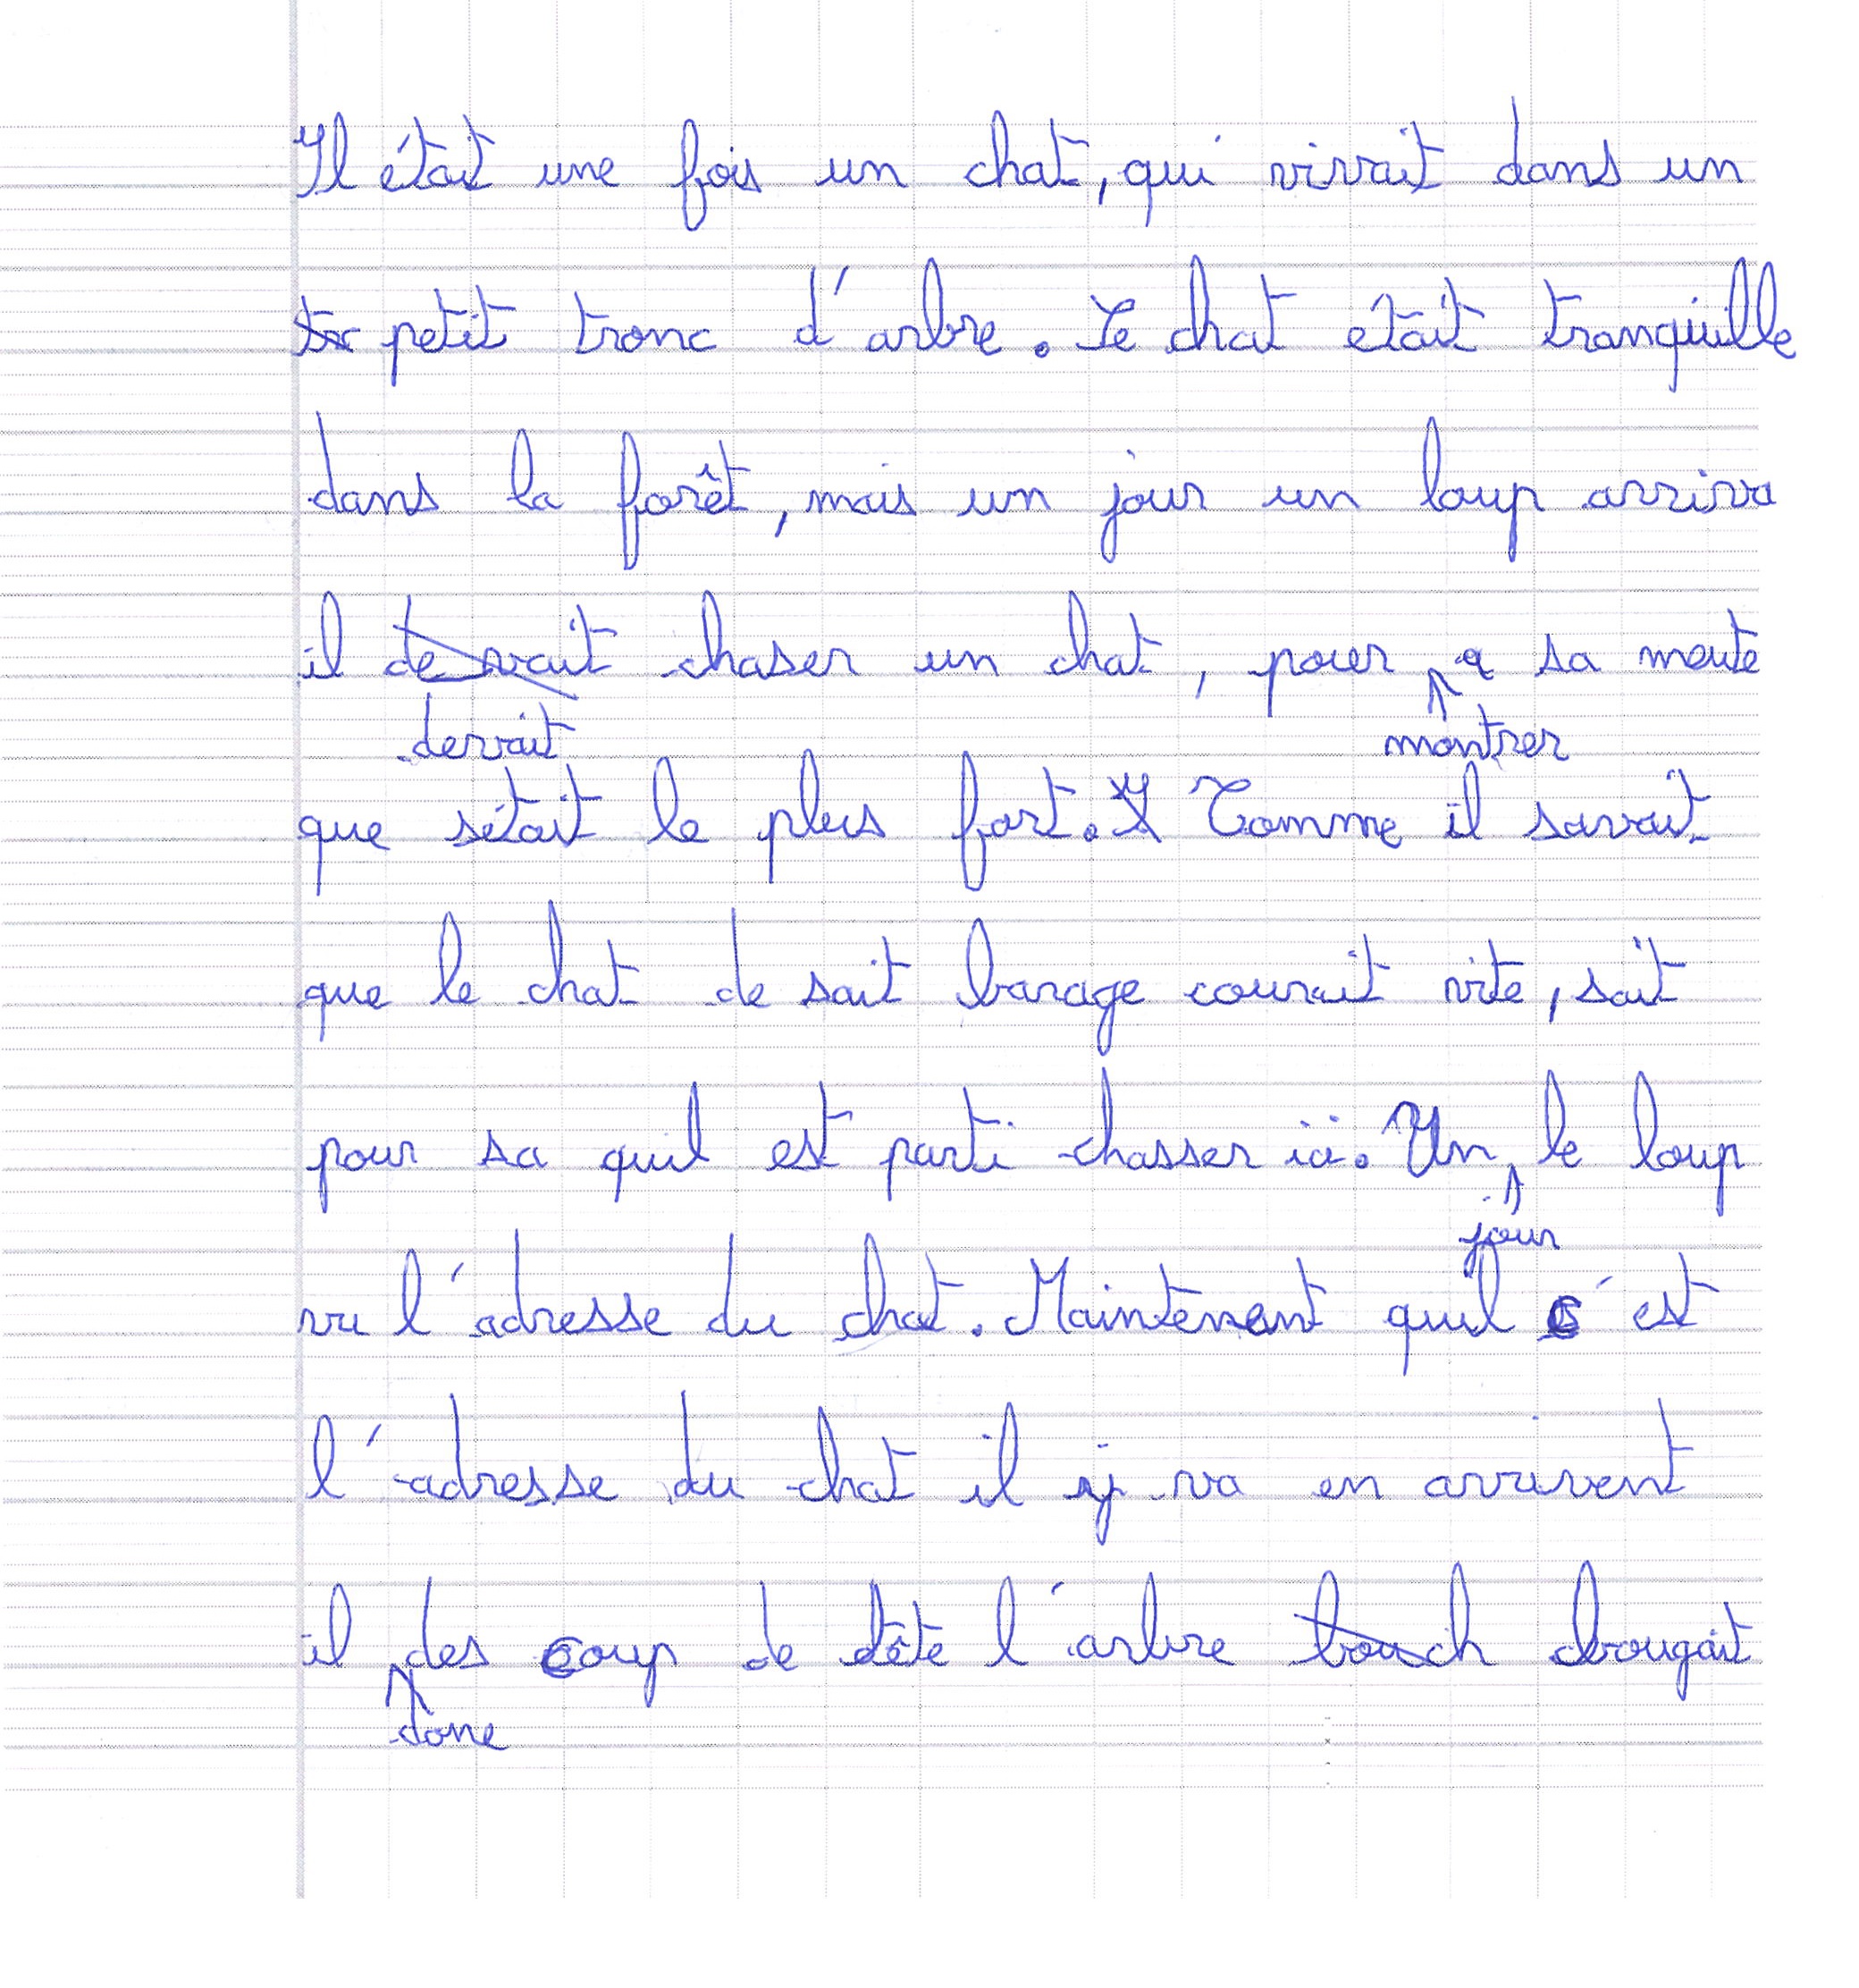 Il était une fois un chat, qui vivait dans un
petit tronc d'arbre. Le chat était tranquille
dans la forêt, mais un jour un loup arriva
il de vait chaser un chat, pour a sa meute
devait montrer
que sétait le plus fort. Comme il savait
que le chat de sait barage courait vite, sait
pour sa quil est parti chasser ici. Un le loup
jour
vu l'adresse du chat. Maintenent quil s'est
l'adresse du chat il y va en arrivent
il des coup de tête l'arbre bouch bougait
done